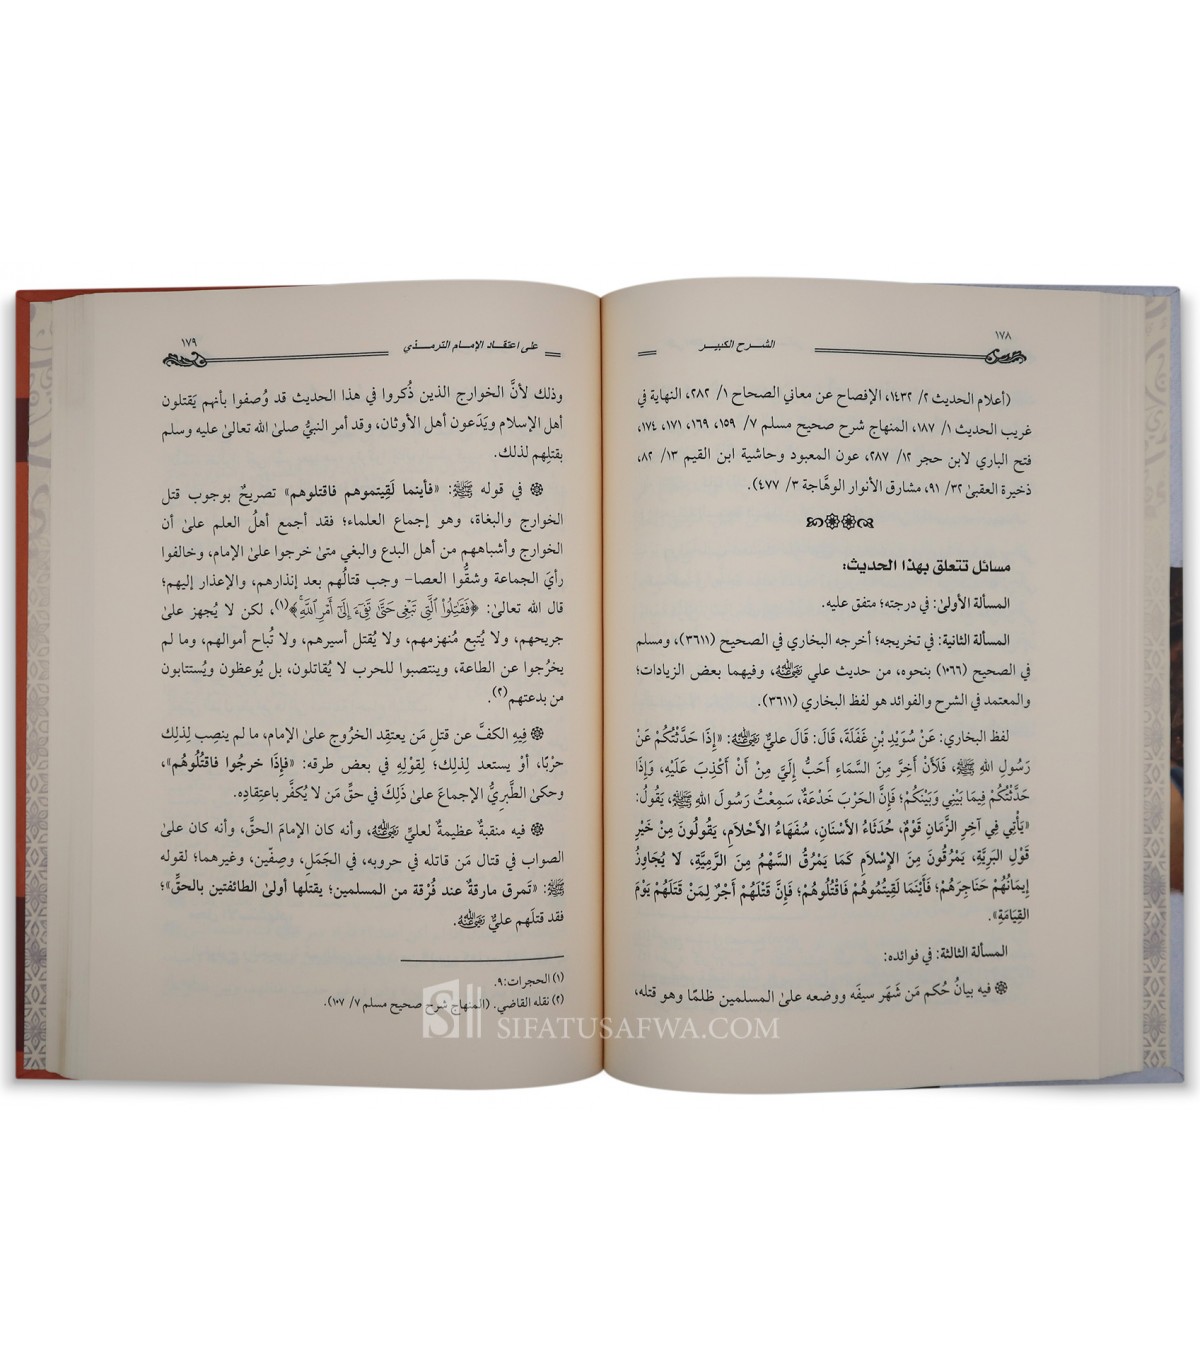 ١٧٨
الشرح الكبير
(أعلام الحديث ٢/ ١٤٣٢، الإفصاح عن معاني الصحاح ١/ ٢٨٢، النهاية في
غريب الحديث ١/ ١٨٧، المنهاج شرح صحيح مسلم ٧/ ١٥٩، ١٦٩، ١٧١، ١٧٤،
فتح الباري لابن حجر ١٢/ ٢٨٧، عون المعبود وحاشية ابن القيم ١٣/ ٨٢،
ذخيرة العقبىٰ ٣٢/ ٩١، مشارق الأنوار الوهَّاجة ٣/ ٤٧٧).
مسائل تتعلق بهذا الحديث:
المسألة الأولىٰ: في درجته؛ متفق عليه.
المسألة الثانية: في تخريجه؛ أخرجه البخاري في الصحيح (٣٦١١)، ومسلم
في الصحيح (١٠٦٦) بنحوه، من حديث علي رَضِيَ اللَّهُ عَنْهُ، وفيهما بعض الزيادات؛
والمعتمد في الشرح والفوائد هو لفظ البخاري (٣٦١١).
لفظ البخاري: عَنْ سُوَيْدِ بْنِ غَفَلَةَ، قَالَ: قَالَ عليٌّ رَضِيَ اللَّهُ عَنْهُ: «إِذَا حَدَّثْتُكُمْ عَنْ
رَسُولِ اللهِ ﷺ، فَلَأَنْ أَخِرَّ مِنَ السَّمَاءِ أَحَبُّ إِلَيَّ مِنْ أَنْ أَكْذِبَ عَلَيْهِ، وَإِذَا
حَدَّثْتُكُمْ فِيمَا بَيْنِي وَبَيْنَكُمْ؛ فَإِنَّ الحَرْبَ خَدْعَةٌ، سَمِعْتُ رَسُولَ اللهِ ﷺ، يَقُولُ:
«يَأْتِي فِي آخِرِ الزَّمَانِ قَوْمٌ، حُدَثَاءُ الأَسْنَانِ، سُفَهَاءُ الأَحْلَامِ، يَقُولُونَ مِنْ خَيْرِ
قَوْلِ البَرِيَّةِ، يَمْرُقُونَ مِنَ الإِسْلَامِ كَمَا يَمْرُقُ السَّهْمُ مِنَ الرَّمِيَّةِ، لَا يُجَاوِزُ
إِيمَانُهُمْ حَنَاجِرَهُمْ؛ فَأَيْنَمَا لَقِيتُمُوهُمْ فَاقْتُلُوهُمْ؛ فَإِنَّ قَتْلَهُمْ أَجْرٌ لِمَنْ قَتَلَهُمْ يَوْمَ
القِيَامَةِ».
المسألة الثالثة: في فوائده:
❁ فيه بيانُ حُكم مَن شَهَر سيفَه ووضعه علىٰ المسلمين ظلمًا وهو قتله،
علىٰ اعتقاد الإمام الترمذي
١٧٩
وذلك لأنَّ الخوارج الذين ذُكروا في هذا الحديث قد وُصفوا بأنهم يَقتلون
أهل الإسلام ويَدَعون أهل الأوثان، وقد أمر النبيُّ صلىٰ الله تعالىٰ عليه وسلم
بقتلِهم لذلك.
❁ في قوله ﷺ: «فأينما لَقِيتموهم فاقتلوهم» تصريحٌ بوجوب قتل
الخوارج والبغاة، وهو إجماع العلماء؛ فقد أجمع أهلُ العلم علىٰ أن
الخوارج وأشباههم من أهل البدع والبغي متىٰ خرجوا علىٰ الإمام، وخالفوا
رأيَ الجماعة وشقُّوا العصا- وجب قتالُهم بعد إنذارهم، والإعذار إليهم؛
قال الله تعالىٰ: ﴿فَقَٰتِلُواْ ٱلَّتِي تَبۡغِي حَتَّىٰ تَفِيٓءَ إِلَىٰٓ أَمۡرِ ٱللَّهِۚ﴾(١)، لكن لا يُجهز علىٰ
جريحهم، ولا يُتبع مُنهزمهم، ولا يُقتل أسيرهم، ولا تُباح أموالهم، وما لم
يخرُجوا عن الطاعة، وينتصبوا للحرب لا يُقاتلون، بل يُوعظون ويُستتابون
من بدعتهم(٢).
❁ فِيهِ الكفَّ عن قتلِ مَن يعتقِد الخرُوج علىٰ الإمام، ما لم ينصِب لِذلِك
حرْبًا، أوْ يستعد لِذلِك؛ لِقوْلِهِ في بعض طرقه: «فإِذَا خرجُوا فاقتُلُوهُم»،
وحكىٰ الطَّبريُّ الإجماعَ علىٰ ذَلِكَ في حقِّ مَن لا يُكفَّر باعتِقادِه.
❁ فيه منقبةٌ عظيمةٌ لعليٍّ رَضِيَ اللَّهُ عَنْهُ، وأنه كان الإمامَ الحقَّ، وأنه كان علىٰ
الصواب في قتال مَن قاتله في حروبه، في الجَمَلِ، وصِفّين، وغيرهما؛ لقوله
ﷺ: «تَمرق مارقةٌ عند فُرْقة من المسلمين؛ يقتلها أولىٰ الطائفتين بالحقِّ»؛
فقد قتلَهم عليٌّ رَضِيَ اللَّهُ عَنْهُ.
(١) الحجرات:٩.
(٢) نقله القاضي. (المنهاج شرح صحيح مسلم ٧/ ١٠٧).
SIFATUSAFWA.COM